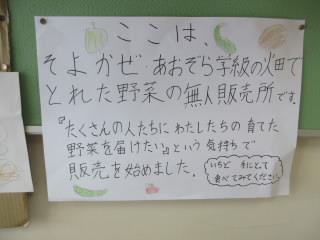 ここは、
そよかぜ・あおぞら学級の畑で
とれた野菜の無人販売所です。
『たくさんの人たちにわたしたちの育てた
野菜を届けたい』という気持ちで
販売を始めました。
いちど 手にとって
食べてみてください